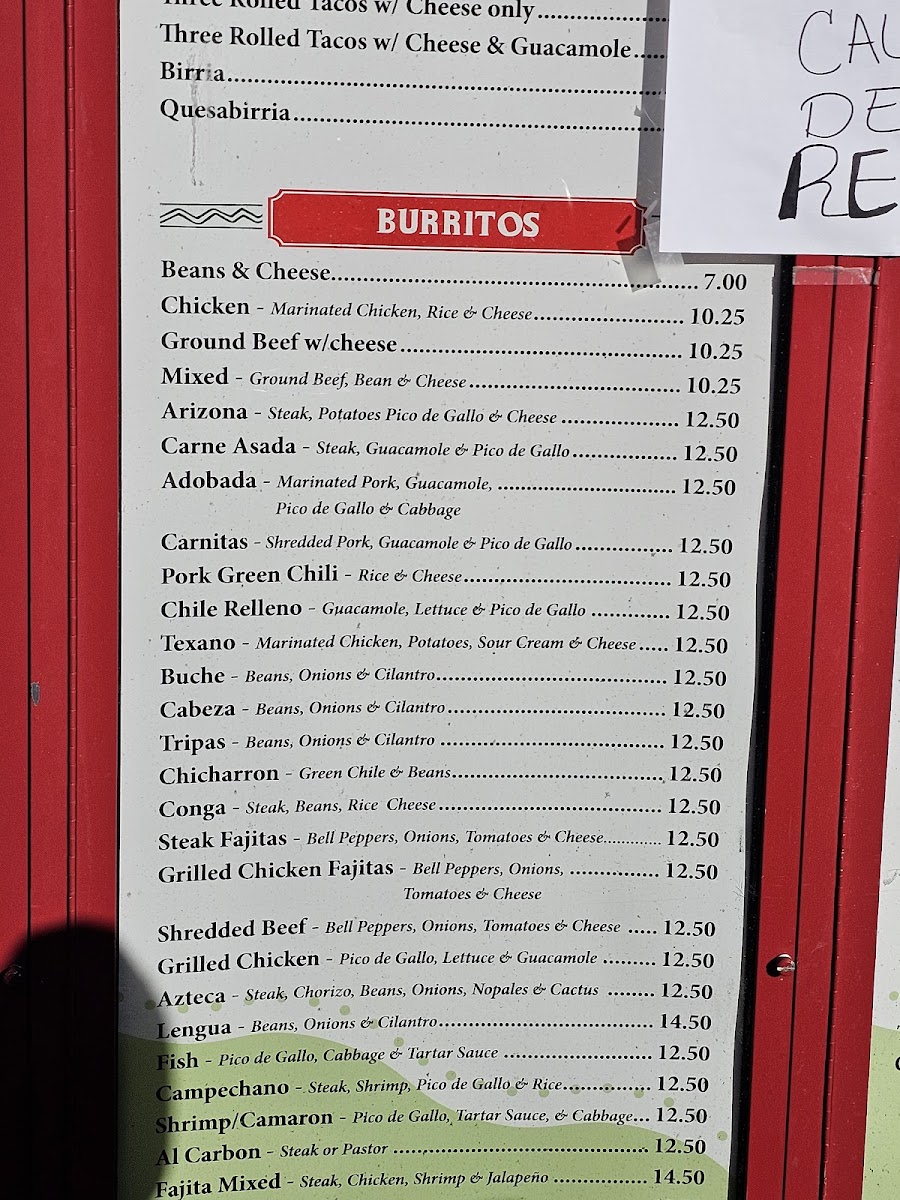 Three Rolled Tacos w/ Cheese only
Three Rolled Tacos w/ Cheese & Guacamole
Birria
Quesabirria
CAL
DE
RE
BURRITOS
Beans & Cheese 7.00
Chicken - Marinated Chicken, Rice & Cheese 10.25
Ground Beef w/cheese 10.25
Mixed - Ground Beef, Bean & Cheese 10.25
Arizona - Steak, Potatoes Pico de Gallo & Cheese 12.50
Carne Asada - Steak, Guacamole & Pico de Gallo 12.50
Adobada - Marinated Pork, Guacamole, 12.50
Pico de Gallo & Cabbage
Carnitas - Shredded Pork, Guacamole & Pico de Gallo 12.50
Pork Green Chili - Rice & Cheese 12.50
Chile Relleno - Guacamole, Lettuce & Pico de Gallo 12.50
Texano - Marinated Chicken, Potatoes, Sour Cream & Cheese 12.50
Buche - Beans, Onions & Cilantro 12.50
Cabeza - Beans, Onions & Cilantro 12.50
Tripas - Beans, Onions & Cilantro 12.50
Chicharron - Green Chile & Beans 12.50
Conga - Steak, Beans, Rice Cheese 12.50
Steak Fajitas - Bell Peppers, Onions, Tomatoes & Cheese 12.50
Grilled Chicken Fajitas - Bell Peppers, Onions, 12.50
Tomatoes & Cheese
Shredded Beef - Bell Peppers, Onions, Tomatoes & Cheese 12.50
Grilled Chicken - Pico de Gallo, Lettuce & Guacamole 12.50
Azteca - Steak, Chorizo, Beans, Onions, Nopales & Cactus 12.50
Lengua - Beans, Onions & Cilantro 14.50
Fish - Pico de Gallo, Cabbage & Tartar Sauce 12.50
Campechano - Steak, Shrimp, Pico de Gallo & Rice 12.50
Shrimp/Camaron - Pico de Gallo, Tartar Sauce, & Cabbage 12.50
Al Carbon - Steak or Pastor 12.50
Fajita Mixed - Steak, Chicken, Shrimp & Jalapeño 14.50